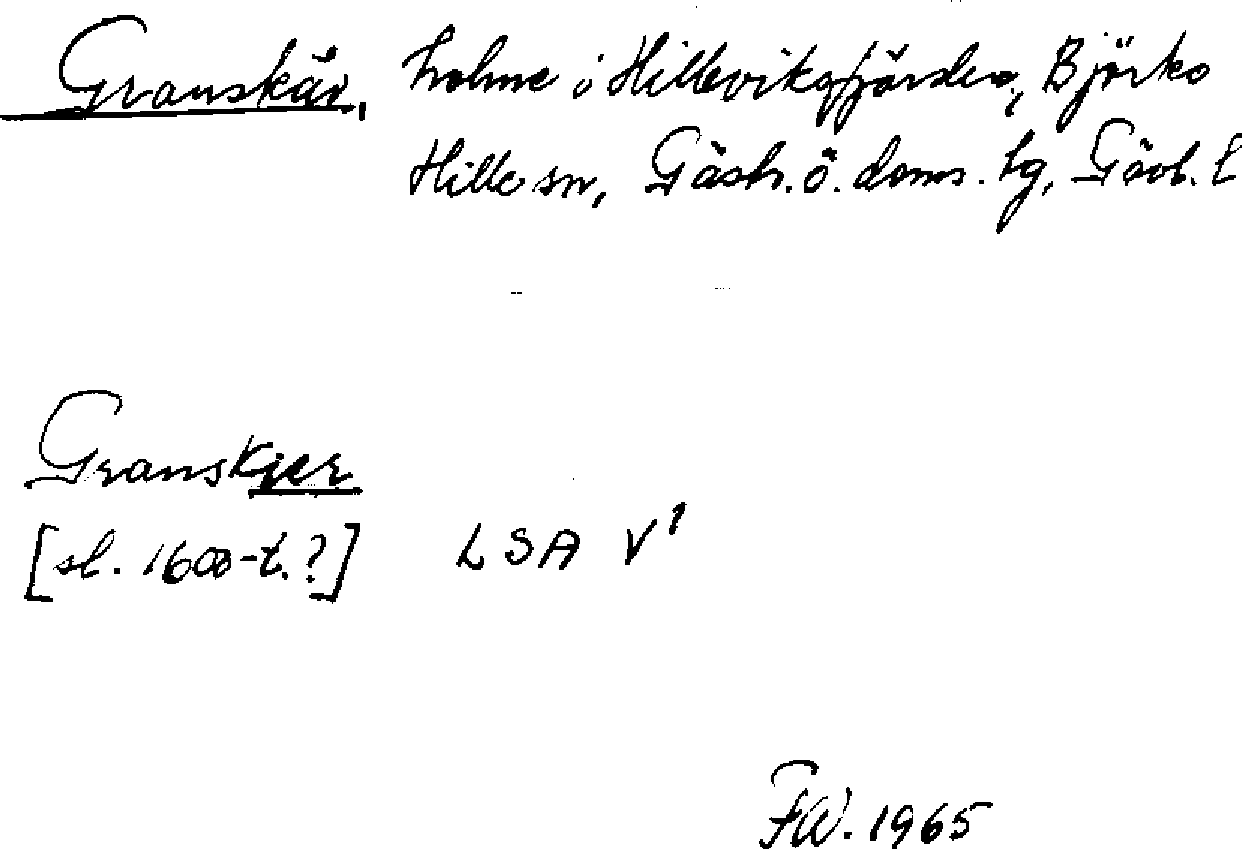 Granskär, holme i Hilleviksfjärden, Björkö
Hille sn, Gästr. ö. doms. lg, Gävl. l
Granskjer
[sl. 1600-t.?] LSA V¹
FW. 1965